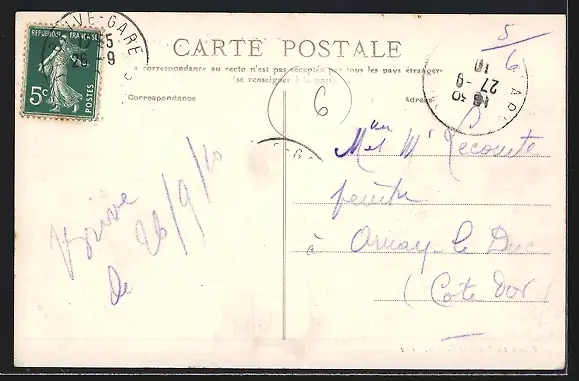 BRIVE-GARE
15
26-9
REPUBLIQUE FRANÇAISE
5c
POSTES
CARTE POSTALE
La correspondance au recto n'est pas acceptée par tous les pays étrangers
(se renseigner à la poste)
Correspondance
Adresse
5
6
6
16 30
27-9
10
Brive
le 26/9/10
Mme et Mr Lecomte
peintre
à Arnay-le Duc
(Côte d'Or)